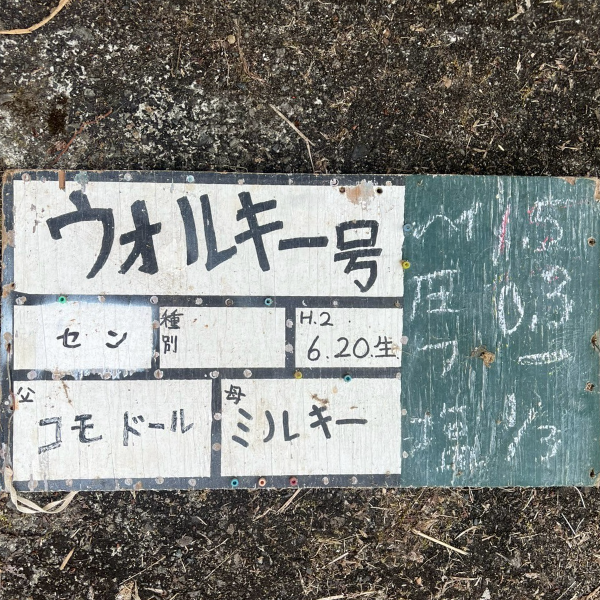 ウォルキー号
セン
種別
H.2
6.20.生
父
コモドール
母
ミルキー
ヘ 1.5
圧 0.3
フ 一
塩 1/3